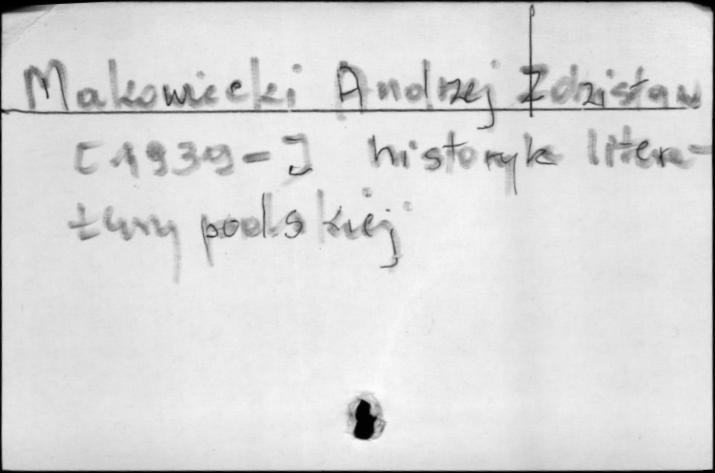 Makowiecki Andrzej Zdzisław
[1939- ] historyk litera-
tury polskiej